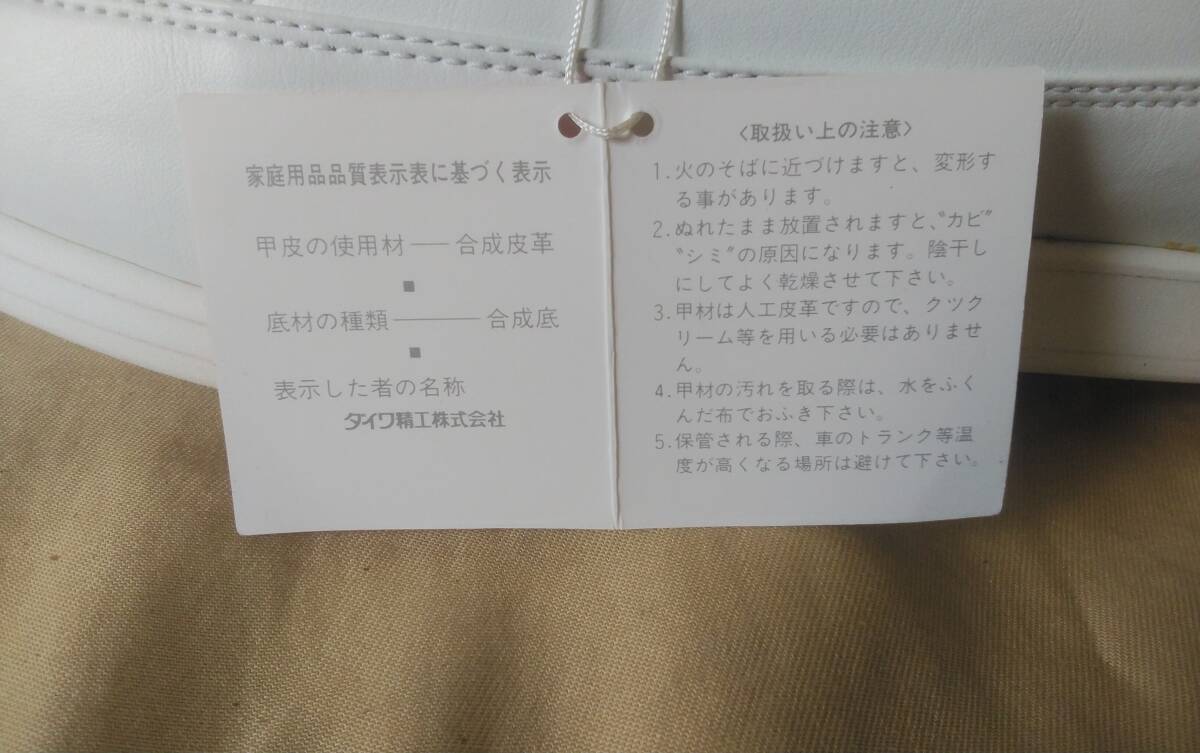 家庭用品品質表示表に基づく表示
甲皮の使用材──合成皮革
■
底材の種類────合成底
■
表示した者の名称
ダイワ精工株式会社
〈取扱い上の注意〉
1.火のそばに近づけますと、変形す
る事があります。
2.ぬれたまま放置されますと、〝カビ〟
〝シミ〟の原因になります。陰干し
にしてよく乾燥させて下さい。
3.甲材は人工皮革ですので、クツク
リーム等を用いる必要はありませ
ん。
4.甲材の汚れを取る際は、水をふく
んだ布でおふき下さい。
5.保管される際、車のトランク等温
度が高くなる場所は避けて下さい。